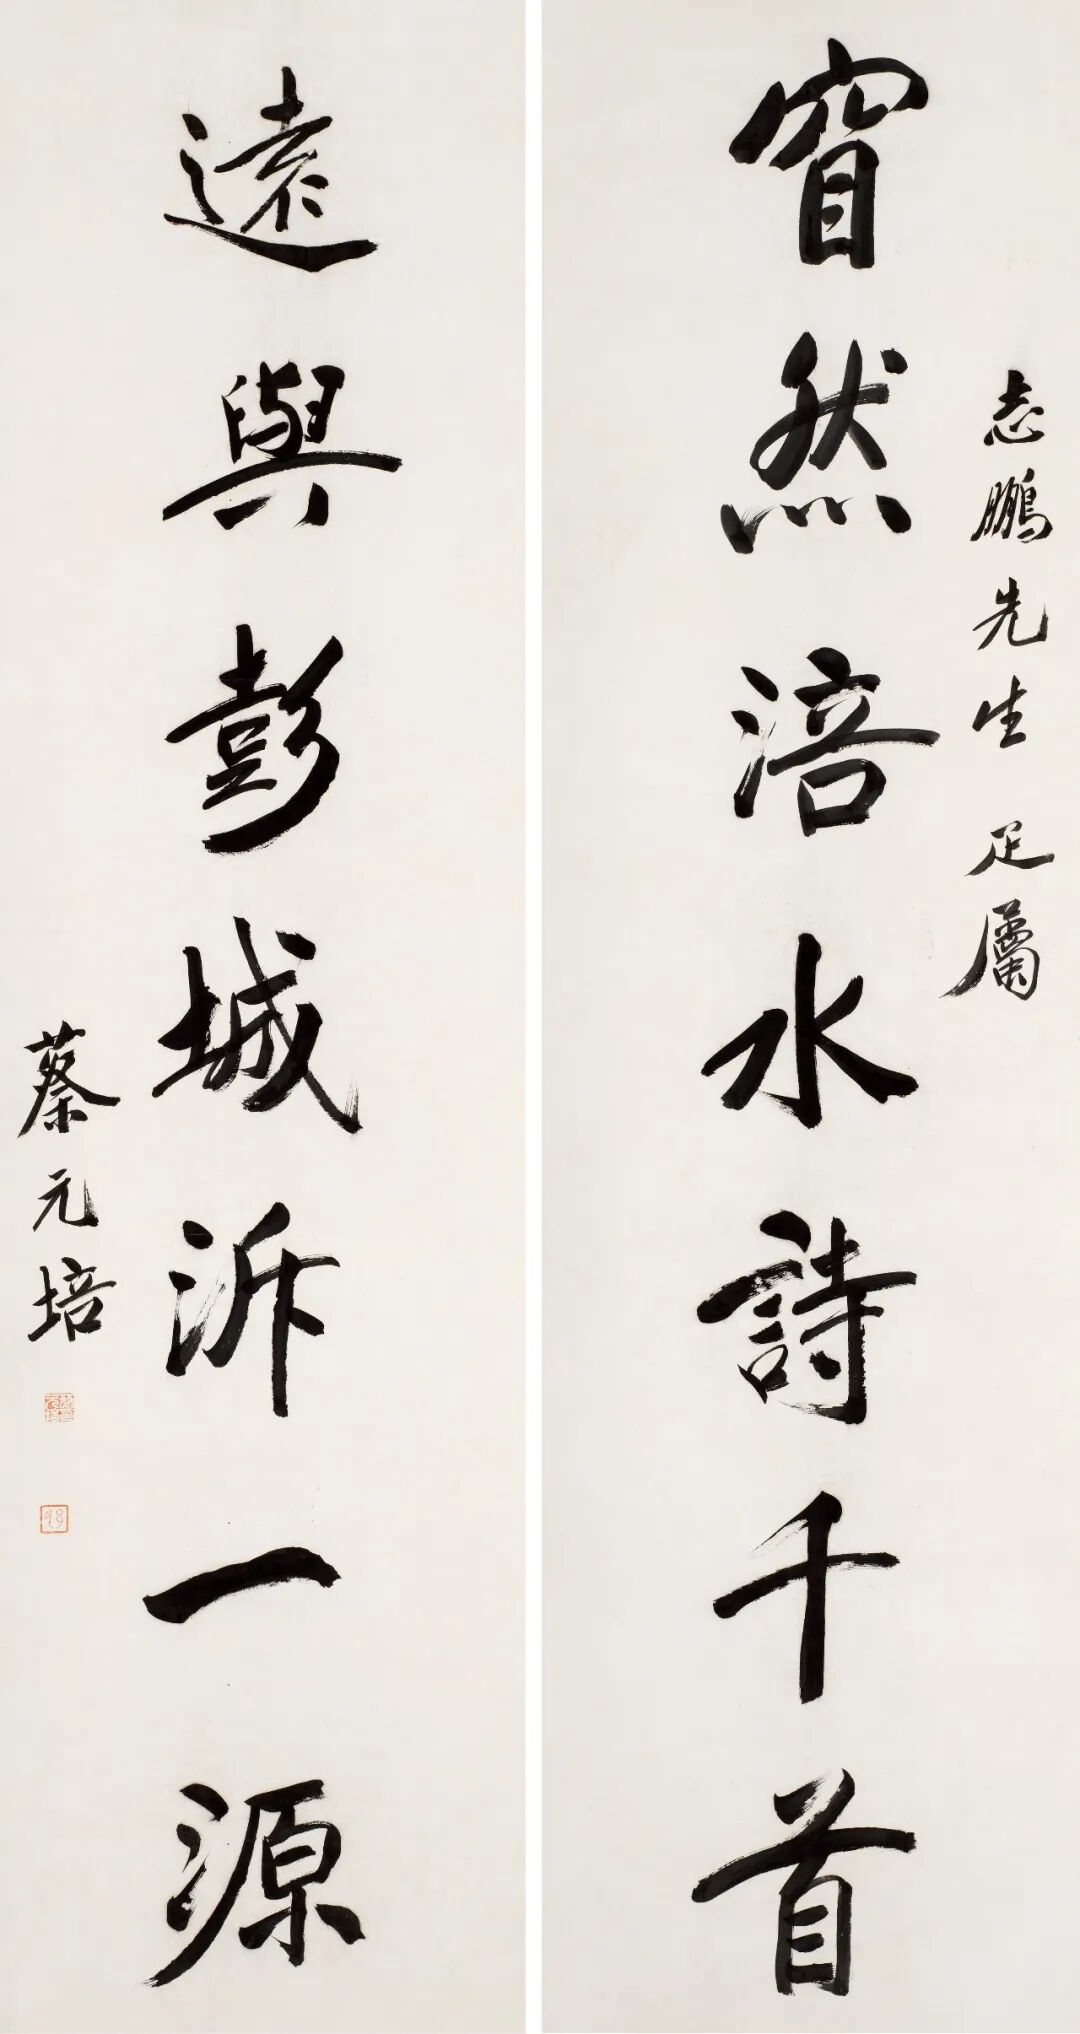 志鵬先生 疋屬
窅然涪水詩千首
遠與彭城泝一源
蔡元培